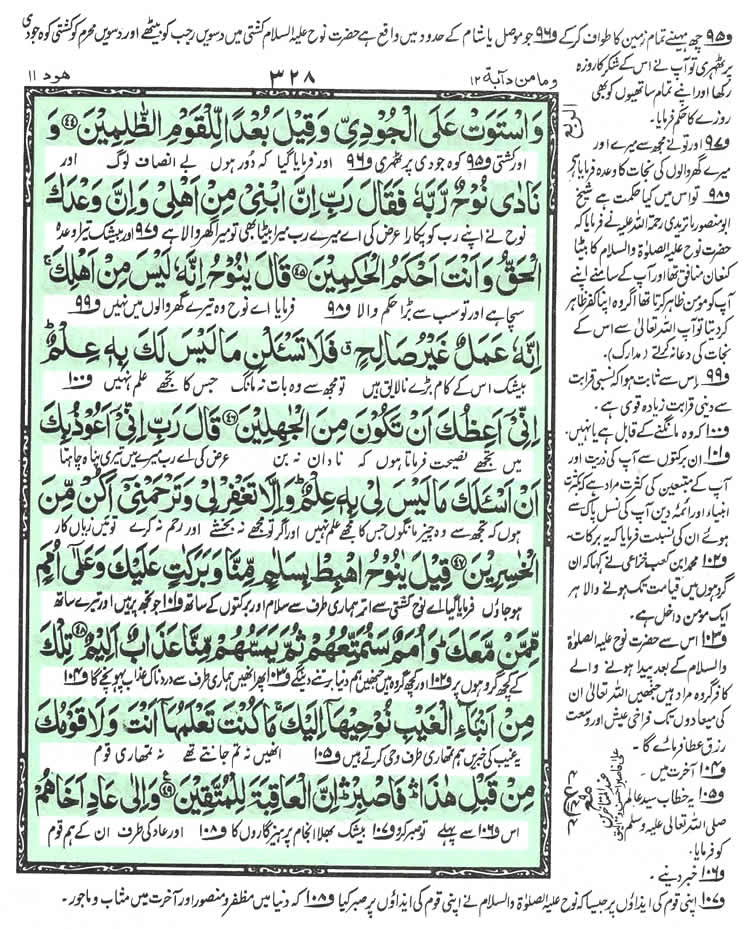 و۹۵ چھ مہینے تمام زمین کا طواف کرکے و۹۶ جو موصل یا شام کے حدود میں واقع ہے حضرت نوح علیہ السلام کشتی میں دسویں رجب کو بیٹھے اور دسویں محرم کو کشتی کوہ جودی
پر ٹھہری تو آپ نے اس کے شکر کا روزہ
رکھا اور اپنے تمام ساتھیوں کو بھی
روزے کا حکم فرمایا۔
و۹۷ اور تو نے مجھ سے میرے اور
میرے گھر والوں کی نجات کا وعدہ فرمایا
و۹۸ تو اس میں کیا حکمت ہے شیخ
ابو منصور ماتریدی رحمۃ اللہ علیہ نے فرمایا کہ
حضرت نوح علیہ الصلوٰۃ والسلام کا بیٹا
کنعان منافق تھا اور آپ کے سامنے اپنے
آپ کو مومن ظاہر کرتا تھا اگر وہ اپنا کفر ظاہر
کردیتا تو آپ اللہ تعالیٰ سے اس کے
نجات کی دعا نہ کرتے (مدارک)۔
و۹۹ اس سے ثابت ہوا کہ نسبی قرابت
سے دینی قرابت زیادہ قوی ہے۔
و۱۰۰ کہ وہ مانگنے کے قابل ہے یا نہیں۔
و۱۰۱ ان برکتوں سے آپ کی ذریت اور
آپ کے متبعین کی کثرت مراد ہے کہ بکثرت
انبیاء اور ائمہ دین آپ کی نسل پاک سے
ہوئے ان کی نسبت فرمایا کہ یہ برکات۔
و۱۰۲ محمد ابن کعب قرظی نے کہا کہ ان
گروہوں میں قیامت تک ہونے والا ہر
ایک مومن داخل ہے۔
و۱۰۳ اس سے حضرت نوح علیہ الصلوٰۃ
والسلام کے بعد پیدا ہونے والے
کافر گروہ مراد ہیں جنہیں اللہ تعالیٰ ان
کی میعادوں تک فراخی عیش اور وسعت
رزق عطا فرمائے گا۔
و۱۰۴ آخرت میں۔
و۱۰۵ یہ خطاب سید عالم
صلی اللہ تعالیٰ علیہ وسلم
کو فرمایا۔
و۱۰۶ خبر دینے۔
ھود ۱۱
۳۲۸
وما من دآبة ۱۲
وَاسْتَوَتْ عَلَى الْجُوْدِيِّ وَقِيْلَ بُعْدًا لِّلْقَوْمِ الظّٰلِمِيْنَ ﴿۴۴﴾ وَ
اور کشتی و۹۵ کوہ جودی پر ٹھہری و۹۶ اور فرمایا گیا کہ دور ہوں بے انصاف لوگ اور
نَادٰى نُوْحٌ رَّبَّهٗ فَقَالَ رَبِّ اِنَّ ابْنِيْ مِنْ اَهْلِيْ وَاِنَّ وَعْدَكَ
نوح نے اپنے رب کو پکارا عرض کی اے میرے رب میرا بیٹا بھی تو میرا گھر والا ہے و۹۷ اور بیشک تیرا وعدہ
الْحَقُّ وَاَنْتَ اَحْكَمُ الْحٰكِمِيْنَ ﴿۴۵﴾ قَالَ يٰنُوْحُ اِنَّهٗ لَيْسَ مِنْ اَهْلِكَ ۚ
سچا ہے اور تو سب سے بڑا حکم والا و۹۸ فرمایا اے نوح وہ تیرے گھر والوں میں نہیں و۹۹
اِنَّهٗ عَمَلٌ غَيْرُ صَالِحٍ ۖ فَلَا تَسْـَٔلْنِ مَا لَيْسَ لَكَ بِهٖ عِلْمٌ ؕ
بیشک اس کے کام بڑے نالائق ہیں تو مجھ سے وہ بات نہ مانگ جس کا تجھے علم نہیں و۱۰۰
اِنِّيْ اَعِظُكَ اَنْ تَكُوْنَ مِنَ الْجٰهِلِيْنَ ﴿۴۶﴾ قَالَ رَبِّ اِنِّيْ اَعُوْذُ بِكَ
میں تجھے نصیحت فرماتا ہوں کہ نادان نہ بن عرض کی اے رب میرے میں تیری پناہ چاہتا
اَنْ اَسْـَٔلَكَ مَا لَيْسَ لِيْ بِهٖ عِلْمٌ ؕ وَاِلَّا تَغْفِرْ لِيْ وَتَرْحَمْنِيْ اَكُنْ مِّنَ
ہوں کہ تجھ سے وہ چیز مانگوں جس کا مجھے علم نہیں اور اگر تو مجھے نہ بخشے اور رحم نہ کرے تو میں زیاں کار
الْخٰسِرِيْنَ ﴿۴۷﴾ قِيْلَ يٰنُوْحُ اهْبِطْ بِسَلٰمٍ مِّنَّا وَبَرَكٰتٍ عَلَيْكَ وَعَلٰٓى اُمَمٍ
ہوجاؤں فرمایا گیا اے نوح کشتی سے اتر ہماری طرف سے سلام اور برکتوں کے ساتھ و۱۰۱ جو تجھ پر ہیں اور تیرے ساتھ
مِّمَّنْ مَّعَكَ ؕ وَاُمَمٌ سَنُمَتِّعُهُمْ ثُمَّ يَمَسُّهُمْ مِّنَّا عَذَابٌ اَلِيْمٌ ﴿۴۸﴾ تِلْكَ
کے کچھ گروہوں پر و۱۰۲ اور کچھ گروہ ہیں جنہیں ہم دنیا برتنے دینگے و۱۰۳ پھر انھیں ہماری طرف سے دردناک عذاب پہونچے گا و۱۰۴
مِنْ اَنْۢبَآءِ الْغَيْبِ نُوْحِيْهَآ اِلَيْكَ ۚ مَا كُنْتَ تَعْلَمُهَآ اَنْتَ وَلَا قَوْمُكَ
یہ غیب کی خبریں ہم تمھاری طرف وحی کرتے ہیں و۱۰۵ انھیں نہ تم جانتے تھے نہ تمھاری قوم
مِنْ قَبْلِ هٰذَا ۛ فَاصْبِرْ ۛ اِنَّ الْعَاقِبَةَ لِلْمُتَّقِيْنَ ﴿۴۹﴾ وَاِلٰى عَادٍ اَخَاهُمْ
اس و۱۰۶ سے پہلے تو صبر کرو و۱۰۷ بیشک بھلا انجام پرہیزگاروں کا و۱۰۸ اور عاد کی طرف ان کے ہم قوم
و۱۰۷ اپنی قوم کی ایذاؤں پر جیسا کہ نوح علیہ الصلوٰۃ والسلام نے اپنی قوم کی ایذاؤں پر صبر کیا و۱۰۸ کہ دنیا میں مظفر و منصور اور آخرت میں مثاب و ماجور۔